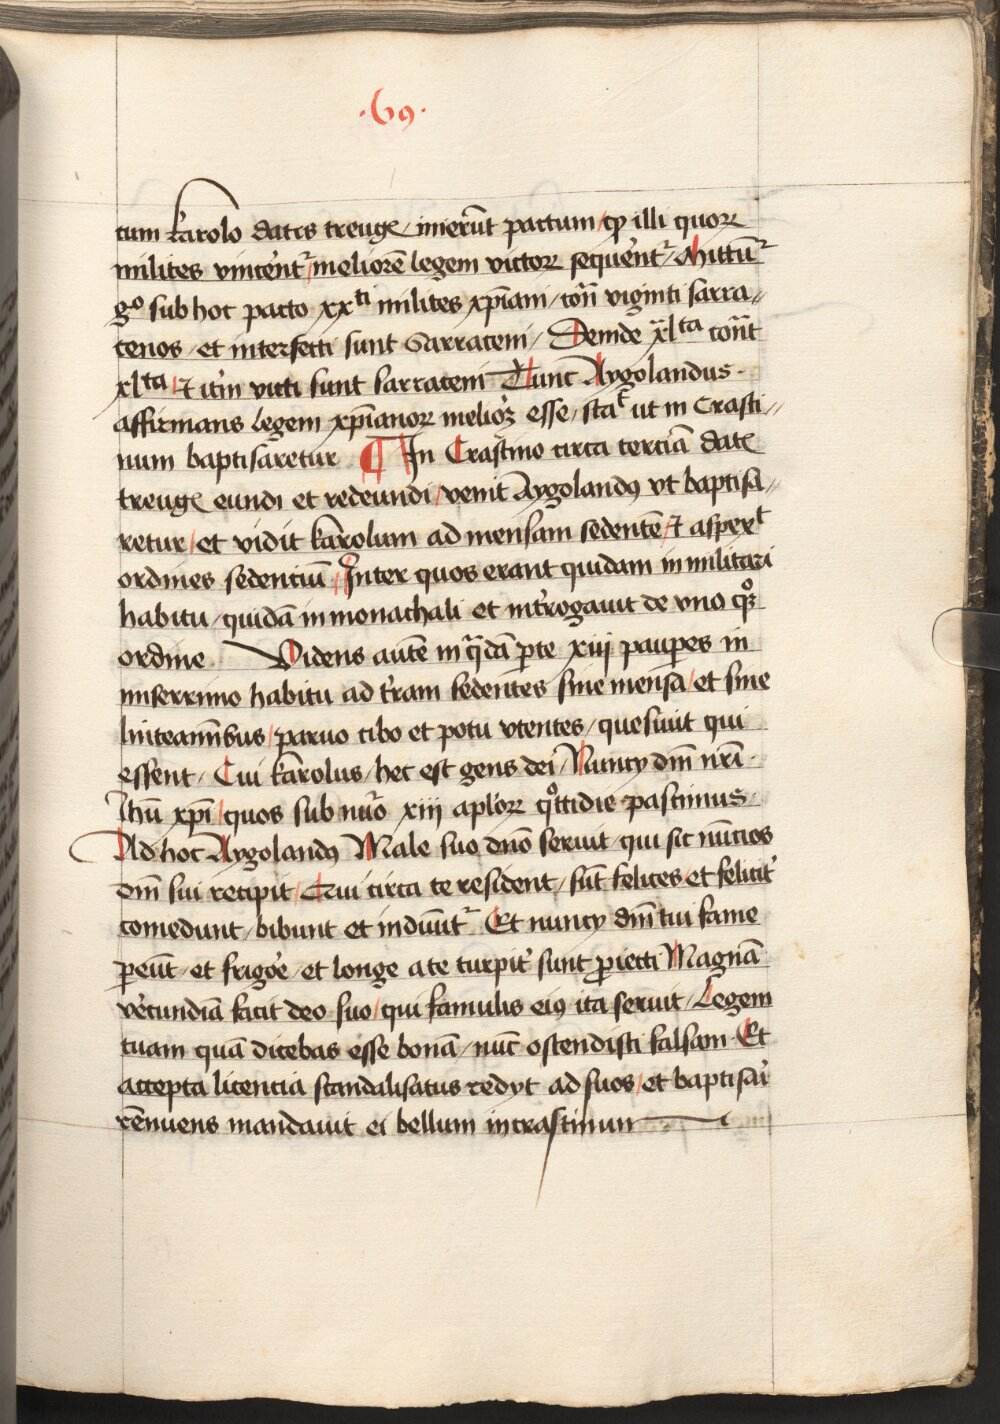 ·69·
cum karolo datis treugꝭ / inierūt pactum / ꝙ illi quoꝝ
milites vincent᷑ / meliorē legem victoꝝ sequent᷑ / Mittūt᷑
gͦ sub hoc pacto xxᵗⁱ milites xp̄iani / cōn̄ viginti sarra〃
cenos / et interfecti sunt Sarraceni / Deinde xlᵗᵃ con̄t
xlᵗᵃ / ⁊ itm̄ victi sunt sarraceni Tunc Aygolandus ·
affirmans legem xp̄ianoꝝ melioꝝ esse / stat᷑ ut in Crasti〃
num baptisaretur ¶ In Crastino circa terciā datꝭ
treugꝭ eundi et redeundi / venit Aygolandꝰ vt baptisa〃
retur / et vidit karolum ad mensam sedentē / ⁊ asperᵗ
ordines sedenciū / Inter quos erant quidam in militari
habitu / quidā in monachali et int̾rogauit de vno qͦꝫ
ordine Videns autē in q̄dā ꝑte xiij pauꝑes in
miserrimo habitu ad t̾ram sedentes sine mensa / et sine
linteamībus / paruo cibo et potu vtentes / quesiuit qui
essent / Cui karolus / hec est gens dei / Nuncy dn̄i nr̄i ·
Ihū xp̄i / quos sub nūo xiij apl̄oꝝ qͦttidie pascimus ·
Ad hoc Aygolandꝰ Male suo dn̄o seruit qui sic nūcios
dn̄i sui recipit / Qui circa te resident / sūt felices et felicit̾
comedunt / bibunt et induūt᷑ Et nuncy dn̄i tui fame
ꝑeūt / et frigoe / et longe a te turpit̾ sunt ꝓiecti Magnā
v̾ecundiā facit deo suo / qui famulis eiꝰ ita seruit / Legem
tuam quā dicebas esse bonā / nūc ostendisti falsam · Et
accepta licencia scandalisatus redyt ad suos / et baptisai̾
rēnuens mandauit ei bellum in crastinum